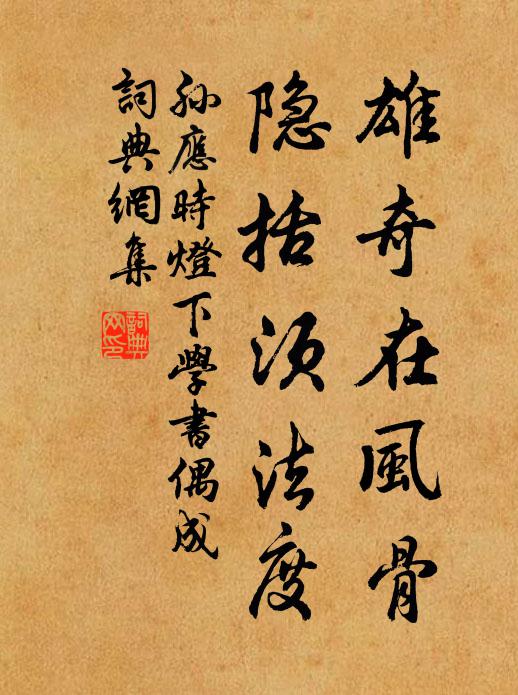 雄奇在風骨
隐括須法度
孙應時燈下學書偶成
詞典網集
詞典網印